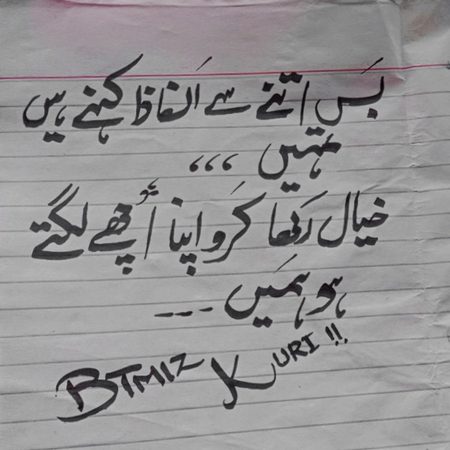 بَس اتنے سے اَلفاظ کہنے ہیں
تمہیں ،،،
خیال رَکھا کَرو اپنا اَچھے لگتے
ہو ہمَیں ---
BTMIZ KURI !!